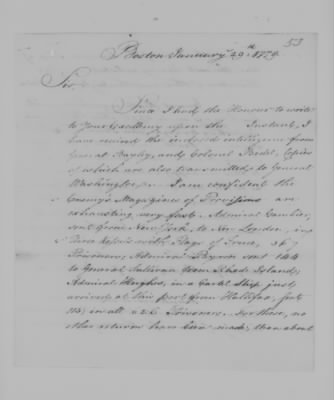 53
Boston January 29th 1779
Sir,
Since I had the Honour to write
to Your Excellency upon the Instant, I
have received the inclosed intelligence from
General Bayley, and Colonel Bedel, Copies
of which are also transmitted to General
Washington. I am confident the
Enemy's Magazines of Provisions are
exhausting very fast. Admiral Gambier,
sent from New York, to New London, in
three Vessels with Flags of Truce, 367
Prisoners; Admiral Byron sent 144
to General Sullivan from Rhode Island;
Admiral Hughes, in a Cartel Ship just
arrived at this port from Hallifax, sent
115; in all 626 Prisoners. For these, no
other returns have been made, than about